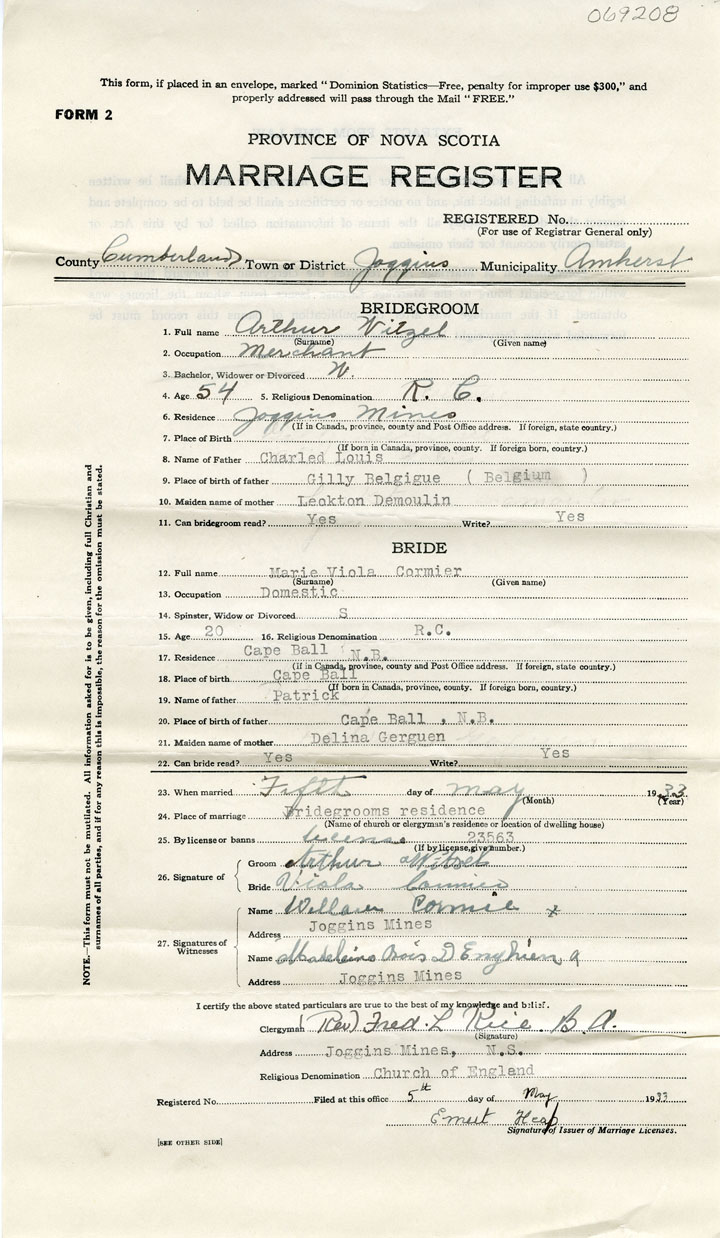 069208
This form, if placed in an envelope, marked "Dominion Statistics—Free, penalty for improper use $300," and
properly addressed will pass through the Mail "FREE."
FORM 2
PROVINCE OF NOVA SCOTIA
MARRIAGE REGISTER
REGISTERED No.
(For use of Registrar General only)
County Cumberland Town or District Joggins Municipality Amherst
BRIDEGROOM
1. Full name Arthur Witzel
(Surname) (Given name)
2. Occupation Merchant
3. Bachelor, Widower or Divorced W.
4. Age 54 5. Religious Denomination R. C.
6. Residence Joggins Mines
(If in Canada, province, county and Post Office address. If foreign, state country.)
7. Place of Birth
(If born in Canada, province, county. If foreign born, country.)
8. Name of Father Charled Louis
9. Place of birth of father Gilly Belgigue ( Belgium )
10. Maiden name of mother Leokton Demoulin
11. Can bridegroom read? Yes Write? Yes
BRIDE
12. Full name Marie Viola Cormier
(Surname) (Given name)
13. Occupation Domestic
14. Spinster, Widow or Divorced S
15. Age 20 16. Religious Denomination R.C.
17. Residence Cape Ball N.B.
(If in Canada, province, county and Post Office address. If foreign, state country.)
18. Place of birth Cape Ball
(If born in Canada, province, county. If foreign born, country.)
19. Name of father Patrick
20. Place of birth of father Cape Ball , N.B.
21. Maiden name of mother Delina Gerguen
22. Can bride read? Yes Write? Yes
23. When married Fifth day of May 1933
(Month) (Year)
24. Place of marriage Bridegrooms residence
(Name of church or clergyman's residence or location of dwelling house)
25. By license or banns license 23563
(If by license, give number.)
26. Signature of
Groom Arthur Witzel
Bride Viola Cormier
27. Signatures of Witnesses
Name William Cormie x
Address Joggins Mines
Name Madeleine Bois D Enghien
Address Joggins Mines
I certify the above stated particulars are true to the best of my knowledge and belief.
Clergyman (Rev) Fred. L Rice. B.A.
(Signature)
Address Joggins Mines, N.S.
Religious Denomination Church of England
Registered No. Filed at this office 5th day of May 1933
Ernest Heap
Signature of Issuer of Marriage Licenses.
[SEE OTHER SIDE]
NOTE.—This form must not be mutilated. All information asked for is to be given, including full Christian and
surnames of all parties, and if for any reason this is impossible, the reason for the omission must be stated.